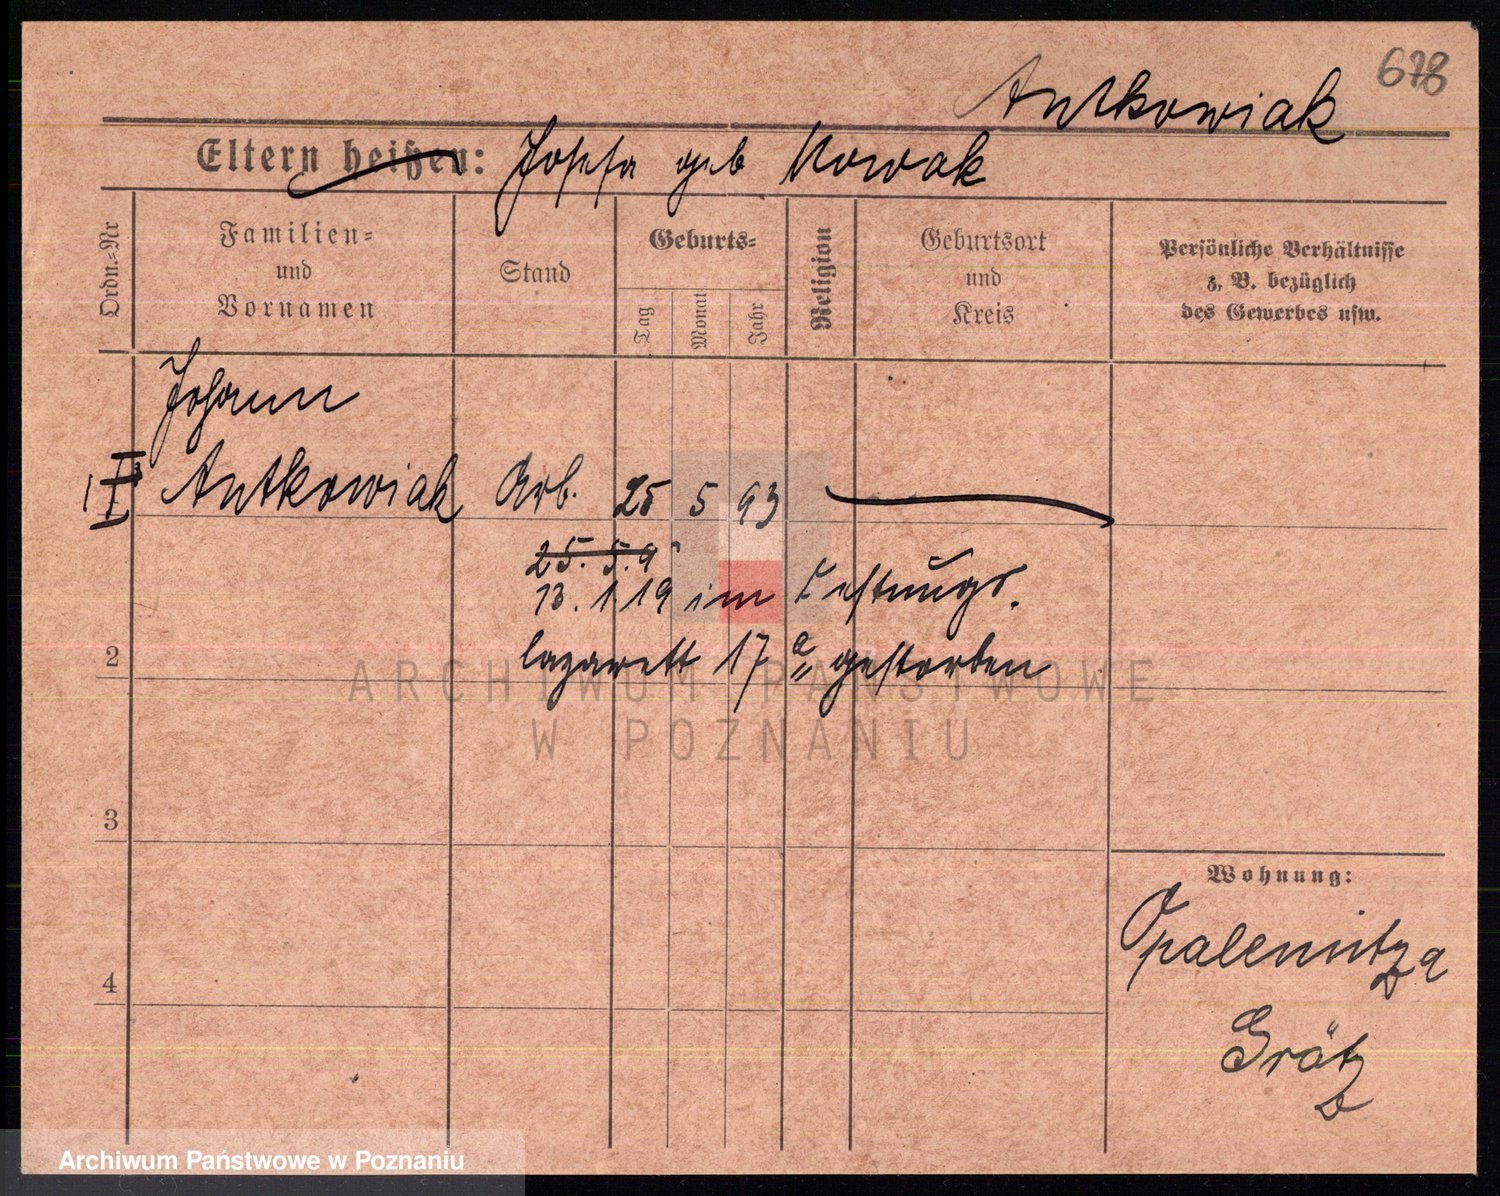 678
Antkowiak
Eltern heißen: Josefa geb Nowak
Ordn.-Nr
Familien-
und
Vornamen
Stand
Geburts-
Tag
Monat
Jahr
Religion
Geburtsort
und
Kreis
Persönliche Verhältnisse
z. B. bezüglich
des Gewerbes usw.
Johann
1 I Antkowiak Arb. 25 5 93
25. 5. 9
13. 1 19 im Festungs.
2 lazarett 17 a gestorben
3
4
Wohnung:
Opalenitza
Grätz
ARCHIWUM PAŃSTWOWE
W POZNANIU
Archiwum Państwowe w Poznaniu